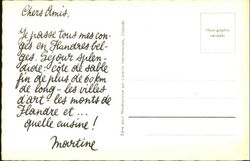 Chers Amis.
Je passe tous mes con-
gés en Flandres bel-
ges. Séjour splen-
dide: côte de sable
fin de plus de 60 km
de long - les villes
d'art - les monts de
Flandre et ...
quelle cuisine!
Martine